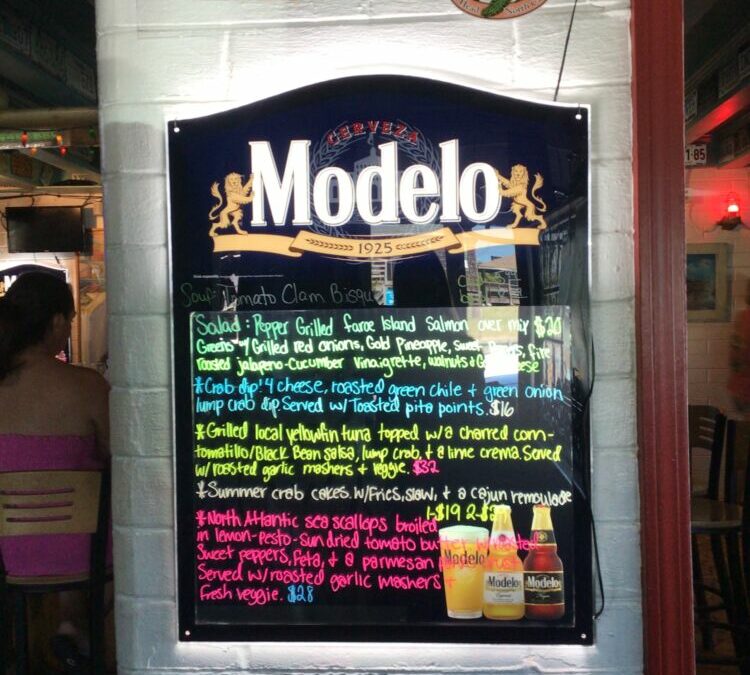 CERVEZA
Modelo
1925
Soup: Tomato Clam Bisque
Salad: Pepper Grilled faroe Island Salmon over mix $20
Greens w/ Grilled red onions, Gold Pineapple, Sweet fire
roasted jalapeno-Cucumber Vinaigrette, walnuts &
*Crab dip! 4 cheese, roasted green chile + green onion
lump crab dip. Served w/ Toasted pita points. $16
*Grilled local yellowfin tuna topped w/ a charred corn-
tomatillo/Black Bean salsa, lump crab, + a lime crema. Served
w/ roasted garlic mashers + veggie. $32
*Summer crab cakes w/ Fries, slaw, + a cajun remoulade
1-$19 2-
*North Atlantic sea scallops broiled
in lemon-pesto-sun dried tomato butter w/ roasted
Sweet peppers, Feta, + a parmesan
Served w/ roasted garlic mashers +
Fresh veggie. $28
Modelo
Modelo
Modelo
1-85